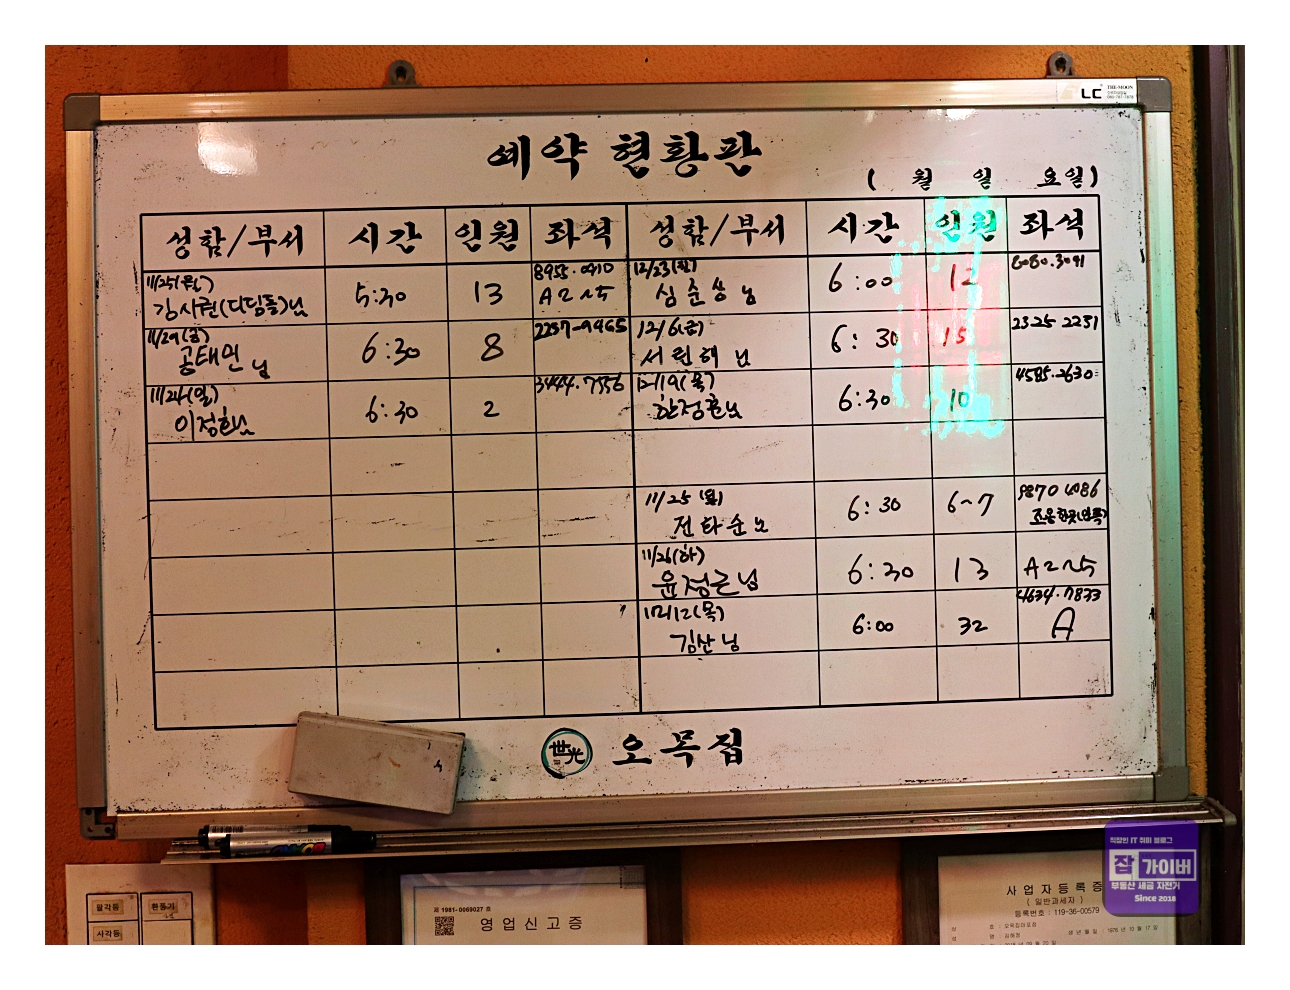 LC THE-MOON
예약 현황판
( 월 일 요일)
성함/부서 시간 인원 좌석 성함/부서 시간 인원 좌석
11/25(월) 8955.0910 12/23(월) 6080.3091
김사원(디딤돌)님 5:30 13 A2~5 심순용님 6:00 12
11/29(금) 2257-9465 12/6(금) 2325 2251
공태민님 6:30 8 서원혜님 6:30 15
11/24(일) 3444.7556 12/19(목) 4585.2630
이정환님 6:30 2 한정훈님 6:30 10
11/25(월) 9870 4086
전타순님 6:30 6~7
11/26(화)
윤정근님 6:30 13 A2~5
12/12(목) 4634.7833
김산님 6:00 32 A
世光 오목집
직장인 IT 취미 블로그
잡가이버
부동산 세금 자전거
Since 2018
팔각등 환풍기
사각등
제 1981-0069027 호
영업신고증
사업자등록증
( 일반과세자 )
등록번호 : 119-36-00579